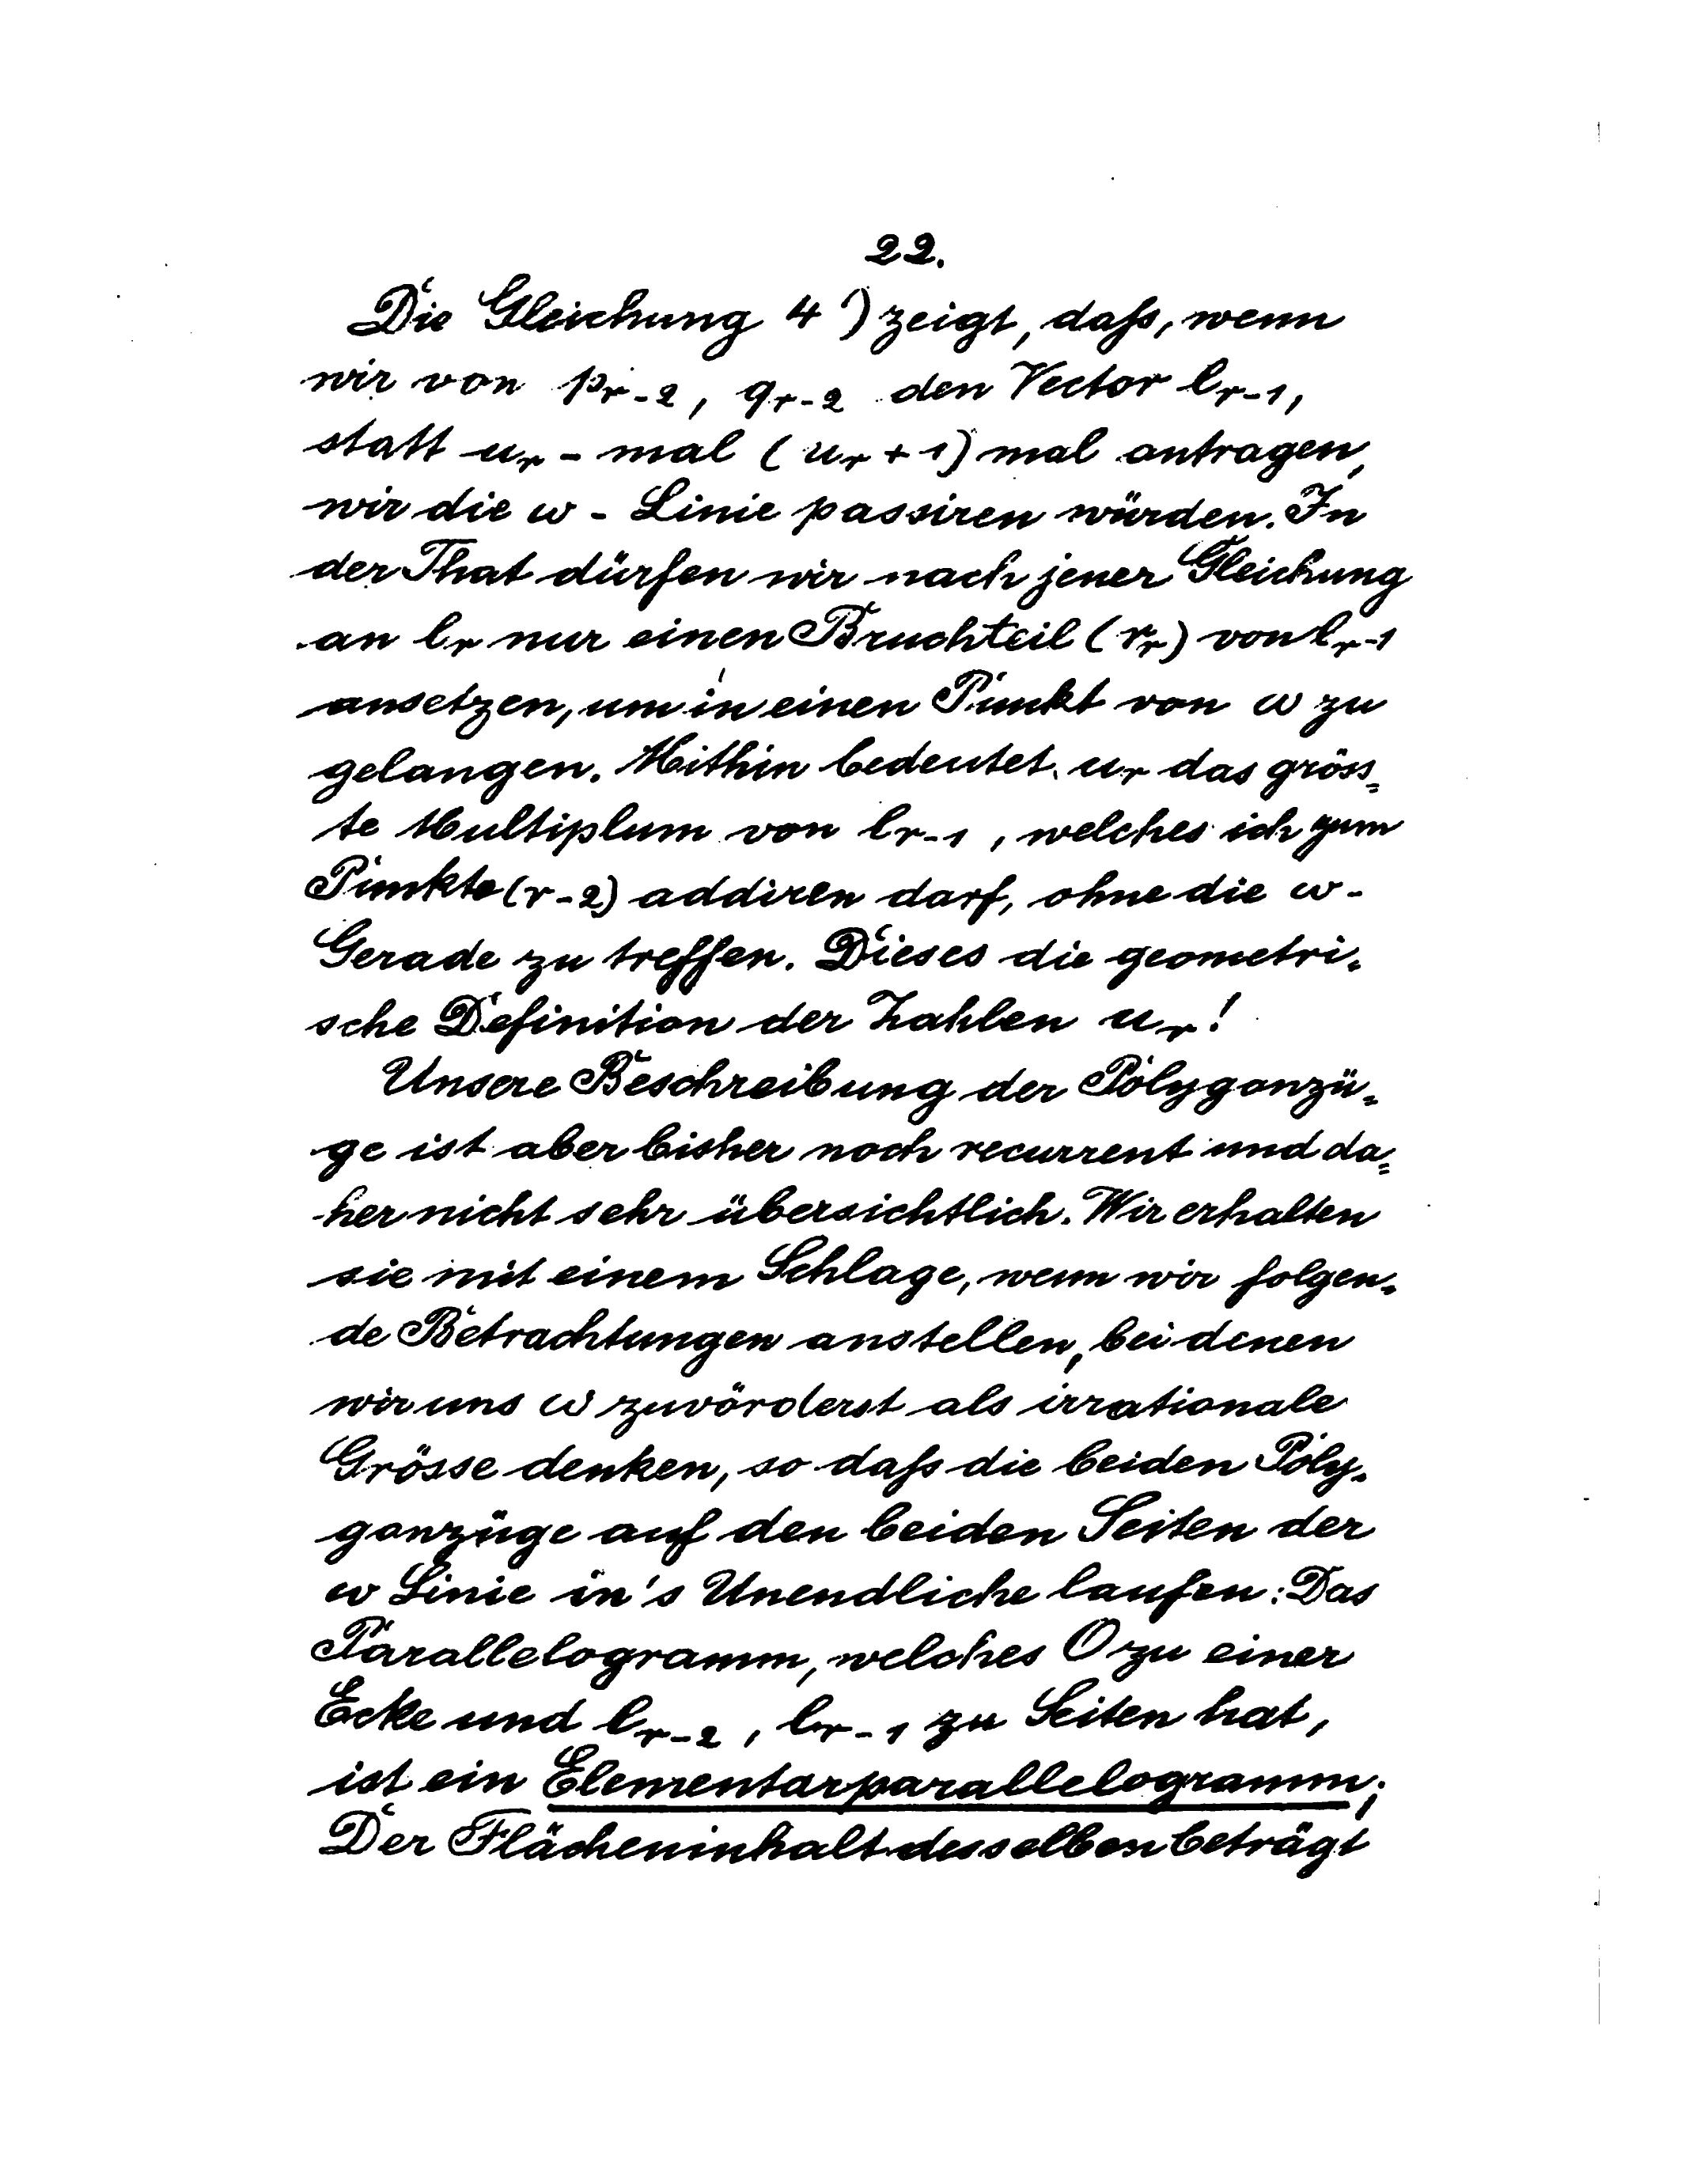 22.
Die Gleichung 4') zeigt, daß, wenn
wir von p_{r-2}, q_{r-2} den Vector l_{r-1},
statt u_r-mal (u_r+1) mal antragen,
wir die ω-Linie passiren würden. In
der That dürfen wir nach jener Gleichung
an l_r nur einen Bruchteil (r_r) von l_{r-1}
ansetzen, um in einen Punkt von ω zu
gelangen. Mithin bedeutet u_r das gröss=
te Multiplum von l_{r-1}, welches ich zum
Punkte (r-2) addiren darf, ohne die ω-
Gerade zu treffen. Dieses die geometri=
sche Definition der Zahlen u_r!
Unsere Beschreibung der Polygonzü=
ge ist aber bisher noch recurrent und da=
her nicht sehr übersichtlich. Wir erhalten
sie mit einem Schlage, wenn wir folgen=
de Betrachtungen anstellen, bei denen
wir uns ω zuvörderst als irrationale
Grösse denken, so daß die beiden Poly=
gonzüge auf den beiden Seiten der
ω Linie in's Unendliche laufen: Das
Parallelogramm, welches O zu einer
Ecke und l_{r-2}, l_{r-1} zu Seiten hat,
ist ein Elementarparallelogramm;
Der Flächeninhalt desselben beträgt